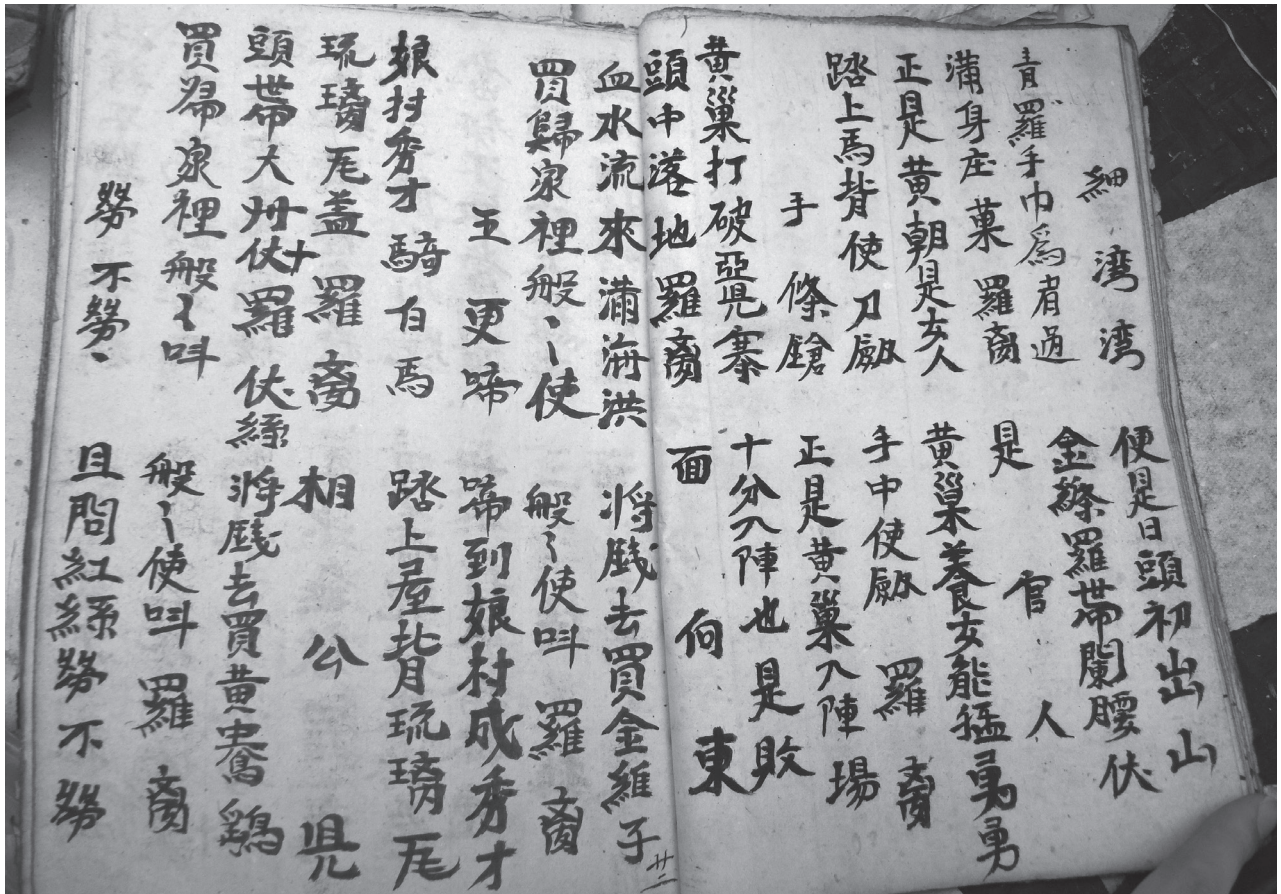 細湾湾 便是日頭初出山
青羅手巾爲者過 金縧羅帶闌腰伏
滿身庄菓羅裔 是官人
正是黄朝是女人 黄巢養女能猛勇勇
踏上馬背使刀劔 手中使劔羅裔
手條鎗 正是黄巢入陣場
黄巢打破亞児寨 十分入陣也是敗
頭中落地羅裔 面向東
血水流來滿海洪 将錢去買金維子
廿二
買歸家裡般〻使 般〻使呌羅裔
五更啼 啼到娘村成秀才
娘村秀才騎白馬 踏上屋背琉璃瓦
琉璃瓦盖羅裔 相公児
頭帶大州伏羅伏 将錢去買黄鷄
買歸家裡般〻呌 般〻使呌羅裔
勞不勞〻 且問紅絲勞不勞